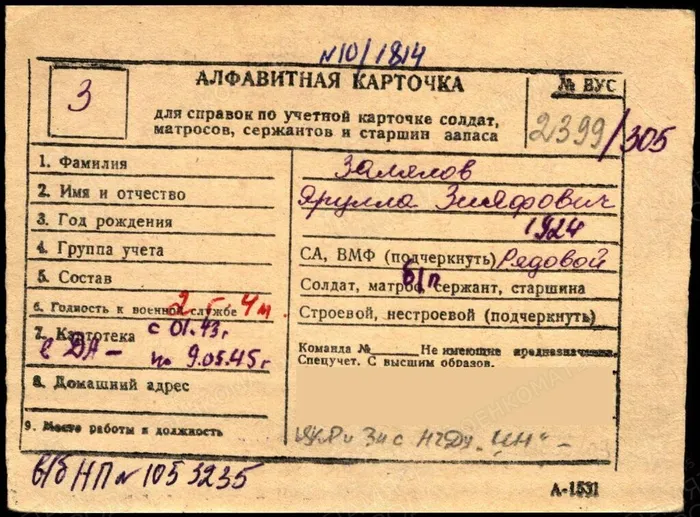 N10/1814
АЛФАВИТНАЯ КАРТОЧКА
для справок по учетной карточке солдат,
матросов, сержантов и старшин запаса
З
№ ВУС
2399/305
1. Фамилия
Залялов
2. Имя и отчество
Ярулла Зияфович
3. Год рождения
1924
4. Группа учета
СА, ВМФ (подчеркнуть) Рядовой
5. Состав
Солдат, матрос, сержант, старшина
б/п
6. Годность к военной службе
2 б 4 м.
Строевой, нестроевой (подчеркнуть)
7. Картотека
с 01.43 г
в ДА – по 9.05.45 г
Команда № Не имеющие предназначения.
Спецучет. С высшим образов.
8. Домашний адрес
9. Место работы и должность
в/б НП N 1053235
А-1531